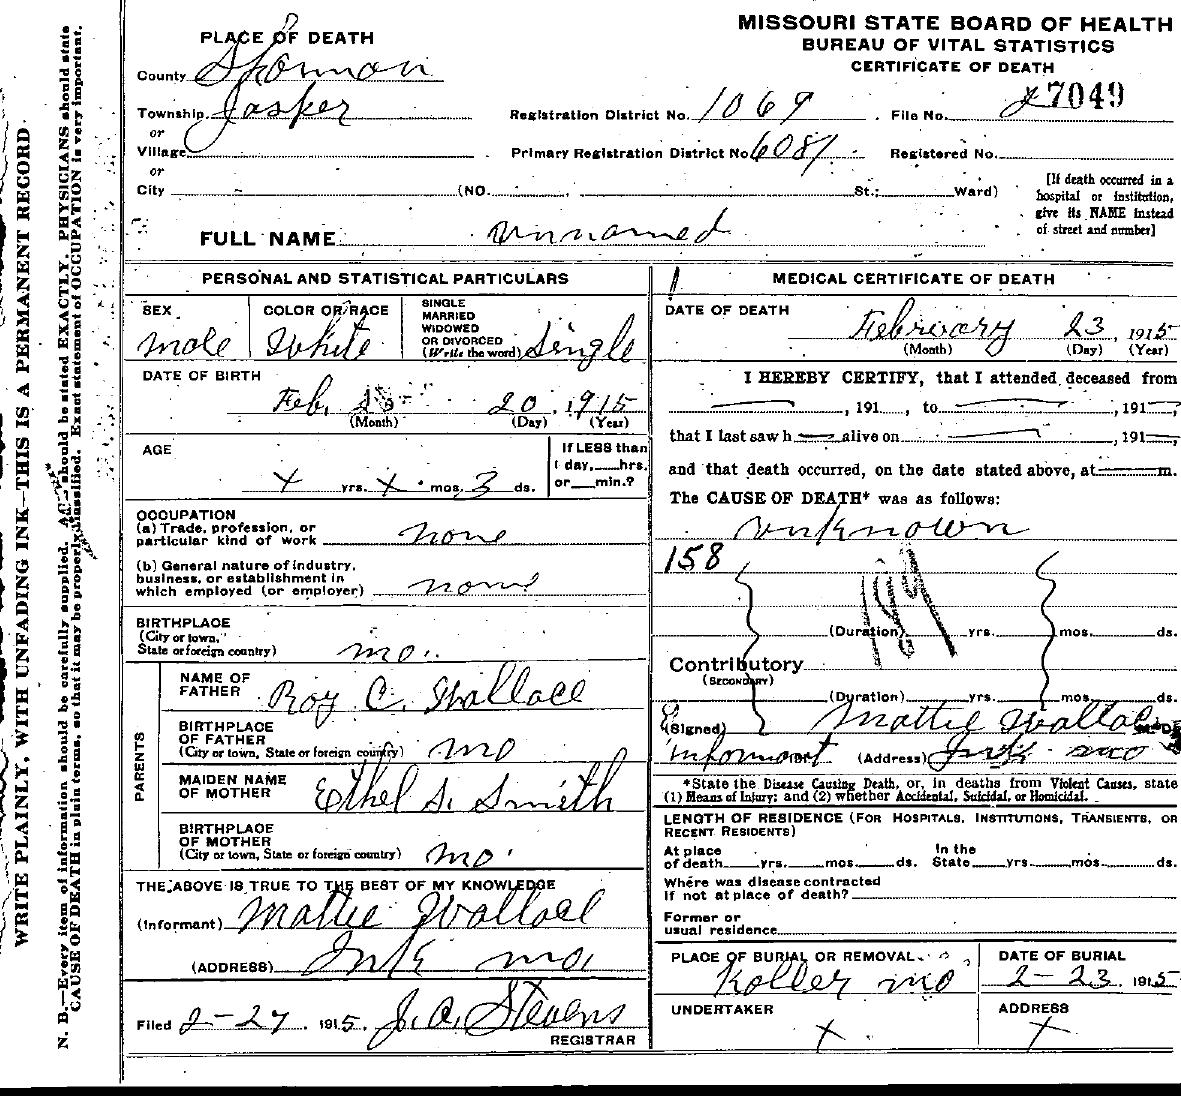 MISSOURI STATE BOARD OF HEALTH
BUREAU OF VITAL STATISTICS
CERTIFICATE OF DEATH
PLACE OF DEATH
County Shannon
Township Jasper
or
Village
or
City (NO. St.; Ward)
Registration District No. 1069
Primary Registration District No. 6081
File No. 7049
Registered No.
[If death occurred in a
hospital or institution,
give its NAME instead
of street and number]
FULL NAME unnamed
PERSONAL AND STATISTICAL PARTICULARS
SEX
male
COLOR OR RACE
White
SINGLE
MARRIED
WIDOWED
OR DIVORCED
(Write the word) Single
DATE OF BIRTH
Feb. 20, 1915
(Month) (Day) (Year)
AGE
x yrs. x mos. 3 ds.
If LESS than
1 day, hrs.
or min.?
OCCUPATION
(a) Trade, profession, or
particular kind of work none
(b) General nature of industry,
business, or establishment in
which employed (or employer) none
BIRTHPLACE
(City or town,
State or foreign country) mo.
PARENTS
NAME OF
FATHER Roy C. Wallace
BIRTHPLACE
OF FATHER
(City or town, State or foreign country) mo
MAIDEN NAME
OF MOTHER Ethel S. Smith
BIRTHPLACE
OF MOTHER
(City or town, State or foreign country) mo.
THE ABOVE IS TRUE TO THE BEST OF MY KNOWLEDGE
(Informant) Mattie Wallace
(ADDRESS) Ink mo.
Filed 2-27, 1915. J. A. Stevens
REGISTRAR
MEDICAL CERTIFICATE OF DEATH
DATE OF DEATH
February 23, 1915
(Month) (Day) (Year)
I HEREBY CERTIFY, that I attended deceased from
, 191 , to , 191 ,
that I last saw h alive on , 191 ,
and that death occurred, on the date stated above, at m.
The CAUSE OF DEATH* was as follows:
unknown
158
189
(Duration) yrs. mos. ds.
Contributory
(SECONDARY)
(Duration) yrs. mos. ds.
(Signed) Mattie Wallace M. D.
informant (Address) Ink mo
*State the Disease Causing Death, or, in deaths from Violent Causes, state
(1) Means of Injury; and (2) whether Accidental, Suicidal, or Homicidal.
LENGTH OF RESIDENCE (FOR HOSPITALS, INSTITUTIONS, TRANSIENTS, OR
RECENT RESIDENTS)
At place
of death yrs. mos. ds.
In the
State yrs. mos. ds.
Where was disease contracted
if not at place of death?
Former or
usual residence
PLACE OF BURIAL OR REMOVAL
Koller mo
DATE OF BURIAL
2-23, 1915
UNDERTAKER
x
ADDRESS
x
WRITE PLAINLY, WITH UNFADING INK—THIS IS A PERMANENT RECORD
N. B.—Every item of information should be carefully supplied. AGE should be stated EXACTLY. PHYSICIANS should state
CAUSE OF DEATH in plain terms, so that it may be properly classified. Exact statement of OCCUPATION is very important.